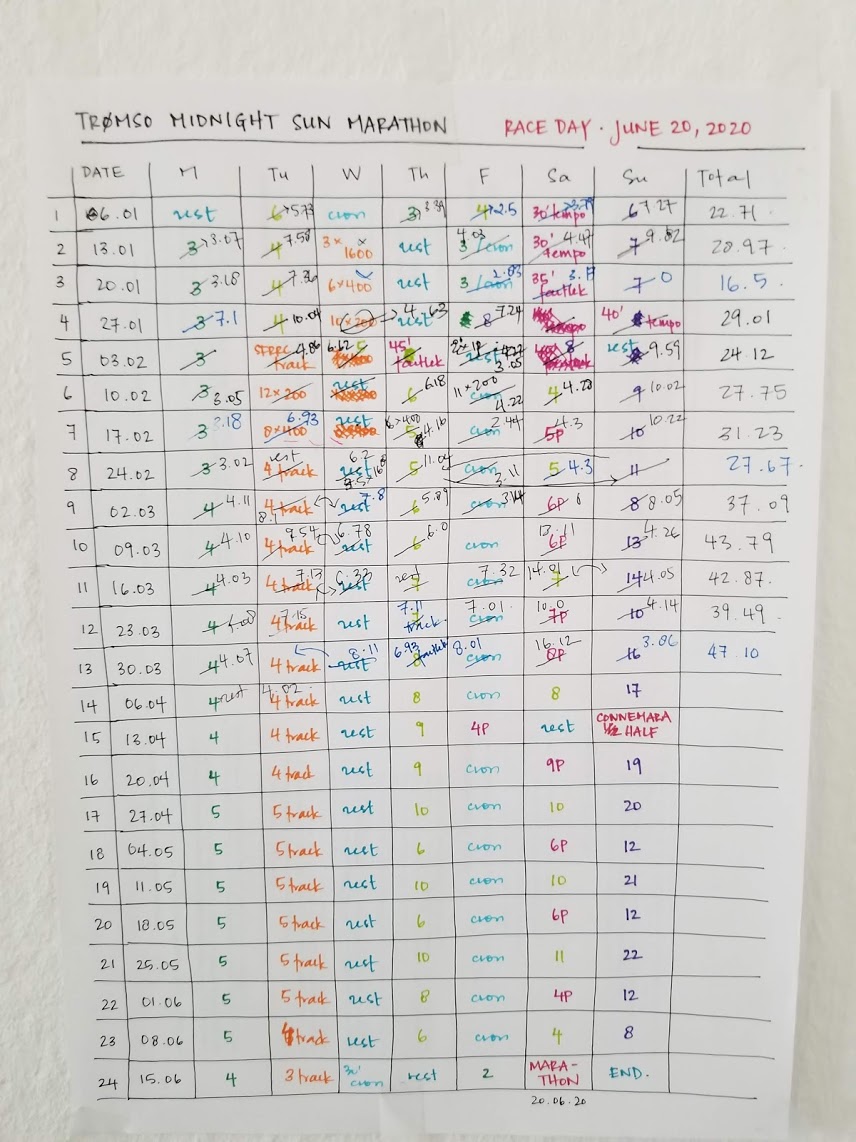 TRØMSO MIDNIGHT SUN MARATHON RACE DAY . JUNE 20, 2020
DATE M Tu W Th F Sa Su Total
1 06.01 rest 6 5.73 cron 3 3.39 4 2.5 30' tempo 3.79 6 7.27 22.71
2 13.01 3 3.07 4 7.58 3 x 1600 rest 4.03 3 / cron 30' tempo 4.47 7 9.82 28.97
3 20.01 3 3.18 4 7.36 6x400 rest 3 / cron 2.83 35' fartlek 3.17 7 0 16.5
4 27.01 3 7.1 4 10.04 10x200 rest 4.63 8 7.24 tempo 40' tempo 29.01
5 03.02 3 SFRRC track 4.86 6.62 5 45' fartlek rest 3.05 8 rest 9.59 24.12
6 10.02 3 3.05 12x200 rest 6 6.18 11x200 cron 4.22 4 4.28 9 10.02 27.75
7 17.02 3 3.18 8x400 6.93 rest 6x400 5 4.16 cron 2.44 5P 4.3 10 10.22 31.23
8 24.02 3 3.02 rest 4 track 6.2 rest 5 11.04 cron 3.11 5 4.3 11 27.67
9 02.03 4 4.11 4 track 8.1 rest 7.8 6 5.89 cron 3.14 6P 8 8 8.05 37.09
10 09.03 4 4.10 9.54 4 track 6.78 rest 6 6.0 cron 13.11 6P 13 4.26 43.79
11 16.03 4 4.03 4 track 7.13 6.33 rest rest 7 cron 7.32 14.01 7 14 4.05 42.87
12 23.03 4 7.15 4 track rest 7.11 track 7.01 cron 10.0 7P 10 4.14 39.49
13 30.03 4 4.07 4 track 8.11 rest 6.93 fartlek 8 8.01 cron 16.12 8P 16 3.86 47.10
14 06.04 4 rest 4.02 4 track rest 8 cron 8 17
15 13.04 4 4 track rest 9 4P rest CONNEMARA 1/2 HALF
16 20.04 4 4 track rest 9 cron 9P 19
17 27.04 5 5 track rest 10 cron 10 20
18 04.05 5 5 track rest 6 cron 6P 12
19 11.05 5 5 track rest 10 cron 10 21
20 18.05 5 5 track rest 6 cron 6P 12
21 25.05 5 5 track rest 10 cron 11 22
22 01.06 5 5 track rest 8 cron 4P 12
23 08.06 5 4 track rest 6 cron 4 8
24 15.06 4 3 track 30' cron rest 2 MARA-THON END.
20.06.20